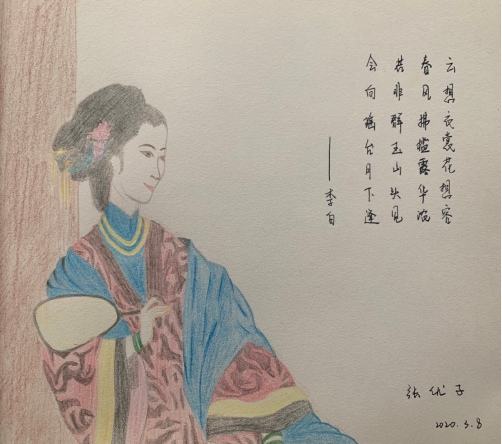 云想衣裳花想容
春风拂槛露华浓
若非群玉山头见
会向瑶台月下逢
——李白
张优子
2020.3.8